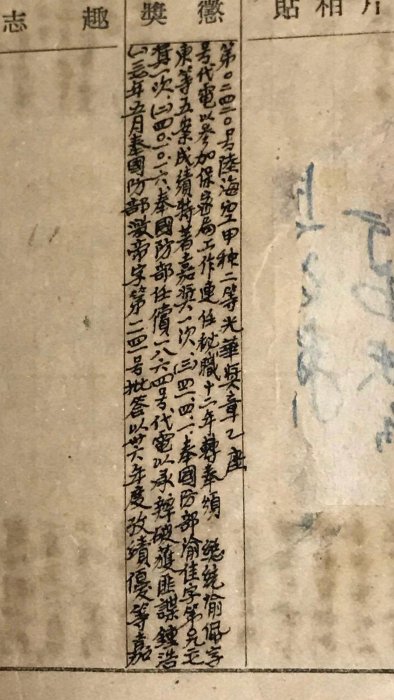 志趣
獎懲
貼相片
年五月奉國防部澂帝字第二四一号批答以卅六年度攷績優等嘉
獎一次、(二)四〇.一〇.一六、奉國防部任償一八六四号代電以承辦破獲匪諜鍾浩
東等五案成績特著嘉獎一次、(三)四一.四.一.奉國防部渝佳字第
号代電以參加保密局工作連任祕職十二年轉奉頒 總統渝佩字
第〇二四二〇号陸海空甲種二等光華獎章乙座